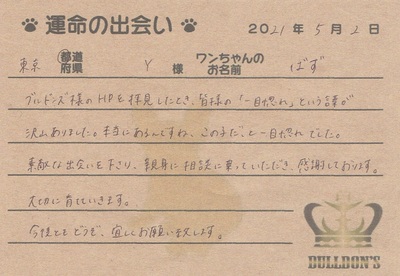 運命の出会い 2021年5月2日
東京 都道府県 Y 様 ワンちゃんのお名前 ばず
ブルドンズ様のHPを拝見したとき、皆様の「一目惚れ」という言葉が
沢山ありました。本当にあるんですね、この子だ、と一目惚れでした。
素敵な出会いを下さり、親身に相談に乗っていただき、感謝しております。
大切に育てていきます。
今後ともどうぞ、宜しくお願い致します。
BULLDON'S